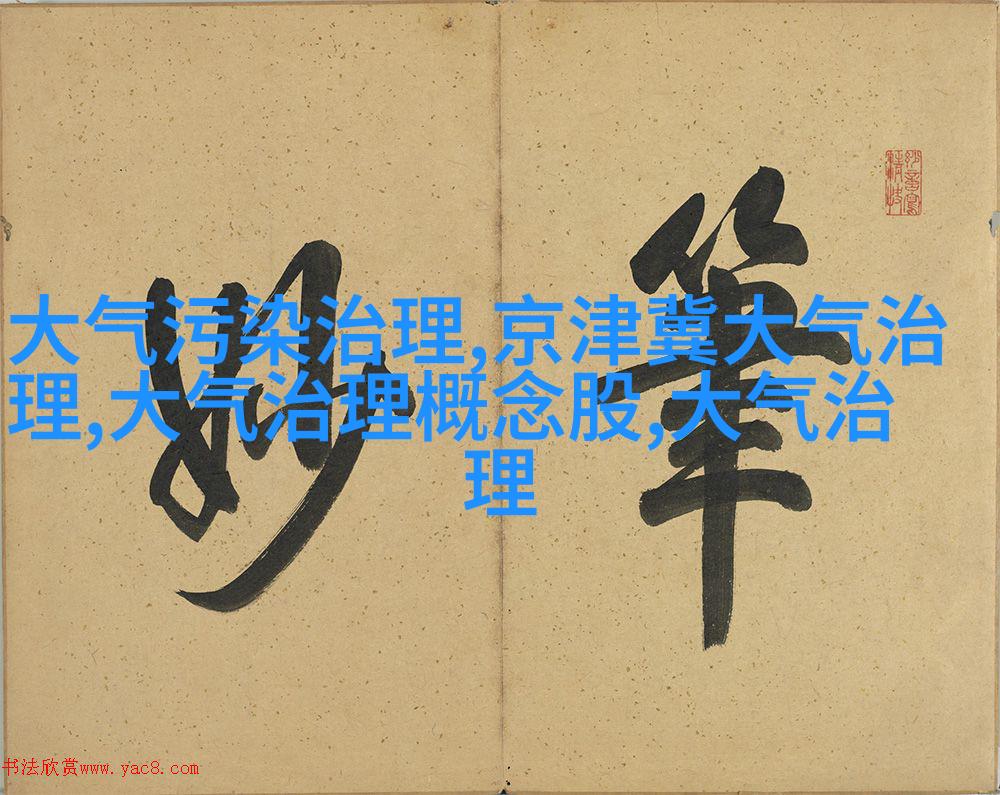 筆妙
大气污染治理,京津冀大气治
理,大气治理概念股,大气治
理
书法欣赏www.yac8.com